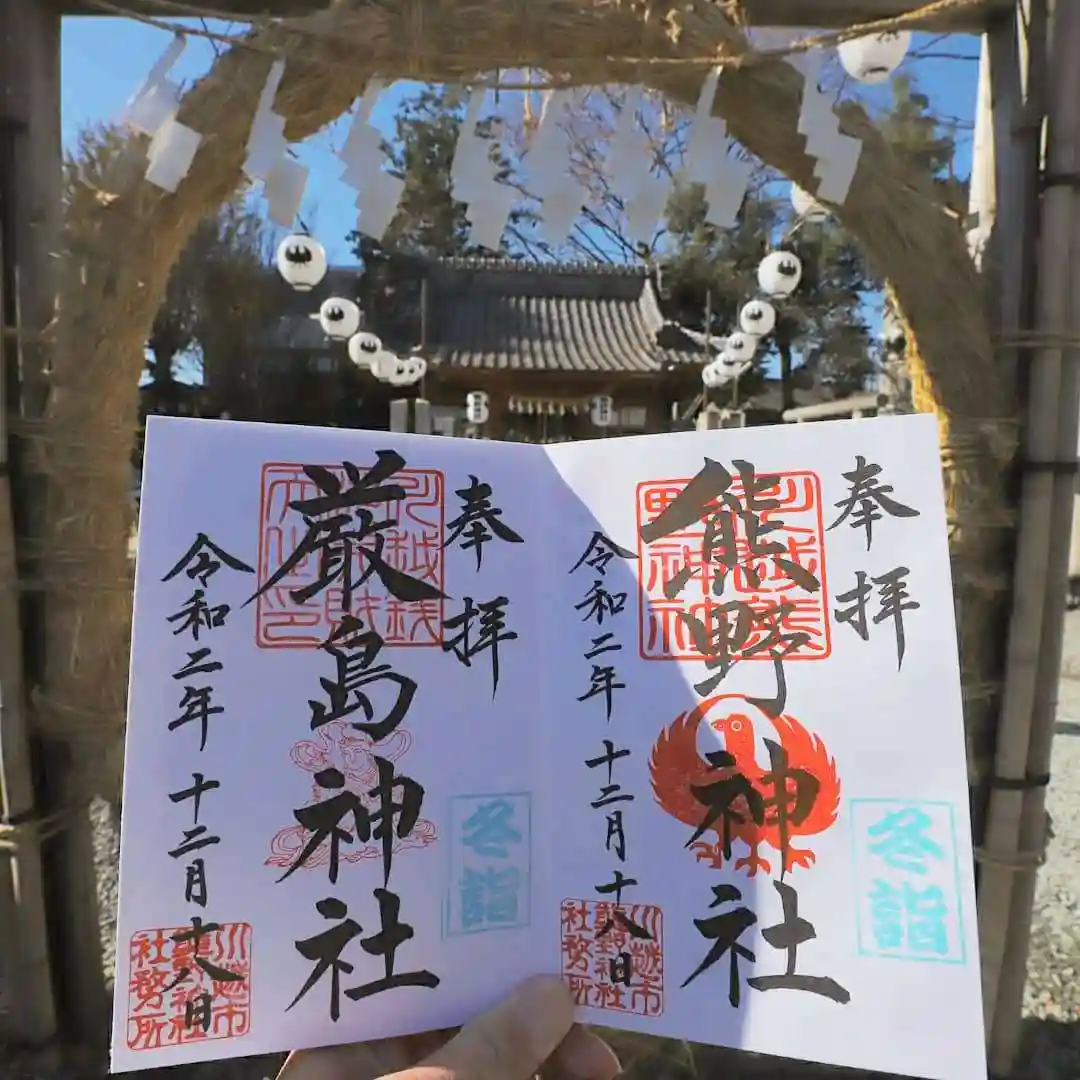 奉拝
熊野神社
令和二年 十二月 十八日
冬詣
川越市
熊野神社
社務所
奉拝
厳島神社
令和二年 十二月 十八日
冬詣
川越市
熊野神社
社務所